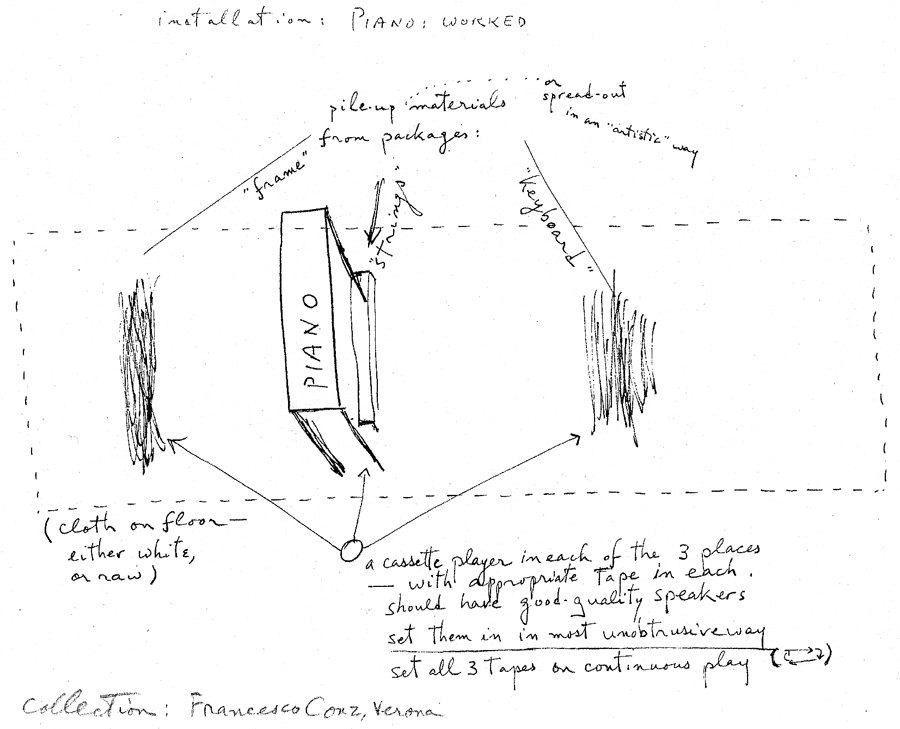 installation: PIANO: WORKED
pile-up materials
from packages:
or
spread-out
in an "artistic" way
"frame"
"strings"
"keyboard"
PIANO
(cloth on floor—
either white,
or raw)
a cassette player in each of the 3 places
— with appropriate tape in each.
should have good-quality speakers
set them in in most unobtrusive way
set all 3 tapes on continuous play (⇄)
collection: Francesco Conz, Verona